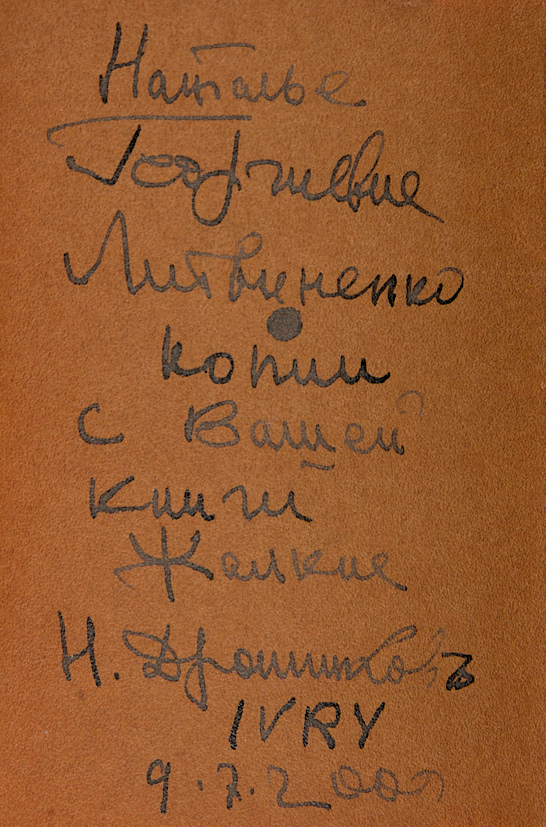 Наталье
Георгиевне
Литвиненко
копии
с Вашей
книги
Жалкие
Н. Дронниковъ
IVRY
9.7.2001